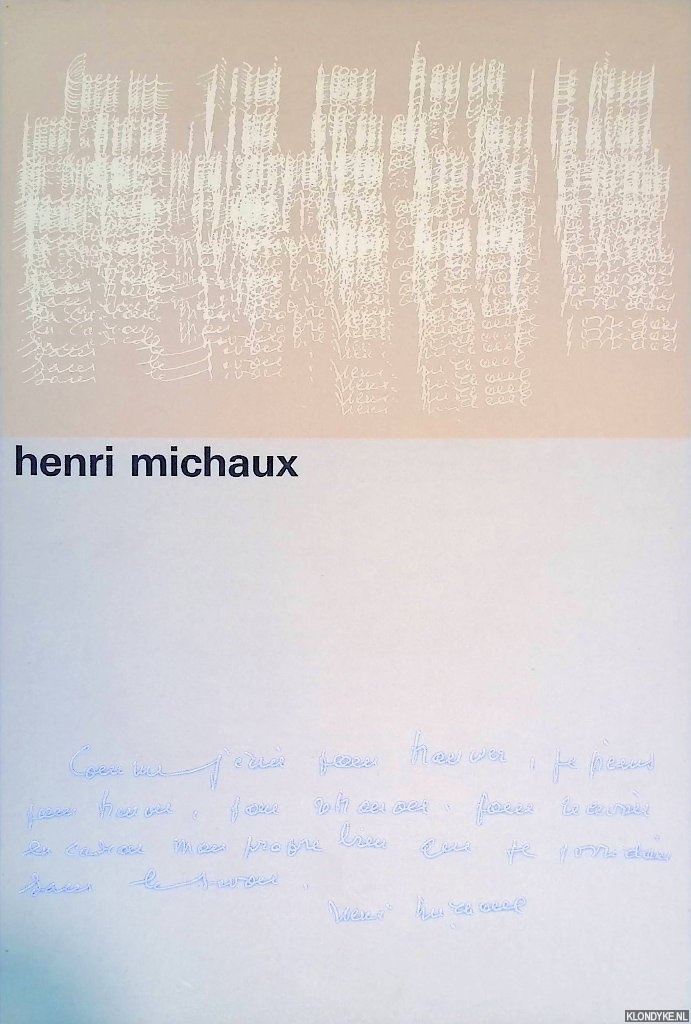 henri michaux
Comme j'écris pour trouver, je peins
pour trouver, pour retrouver, pour recevoir
en cadeau mon propre bien que je possédais
sans le savoir.
Henri Michaux
KLONDYKE.NL